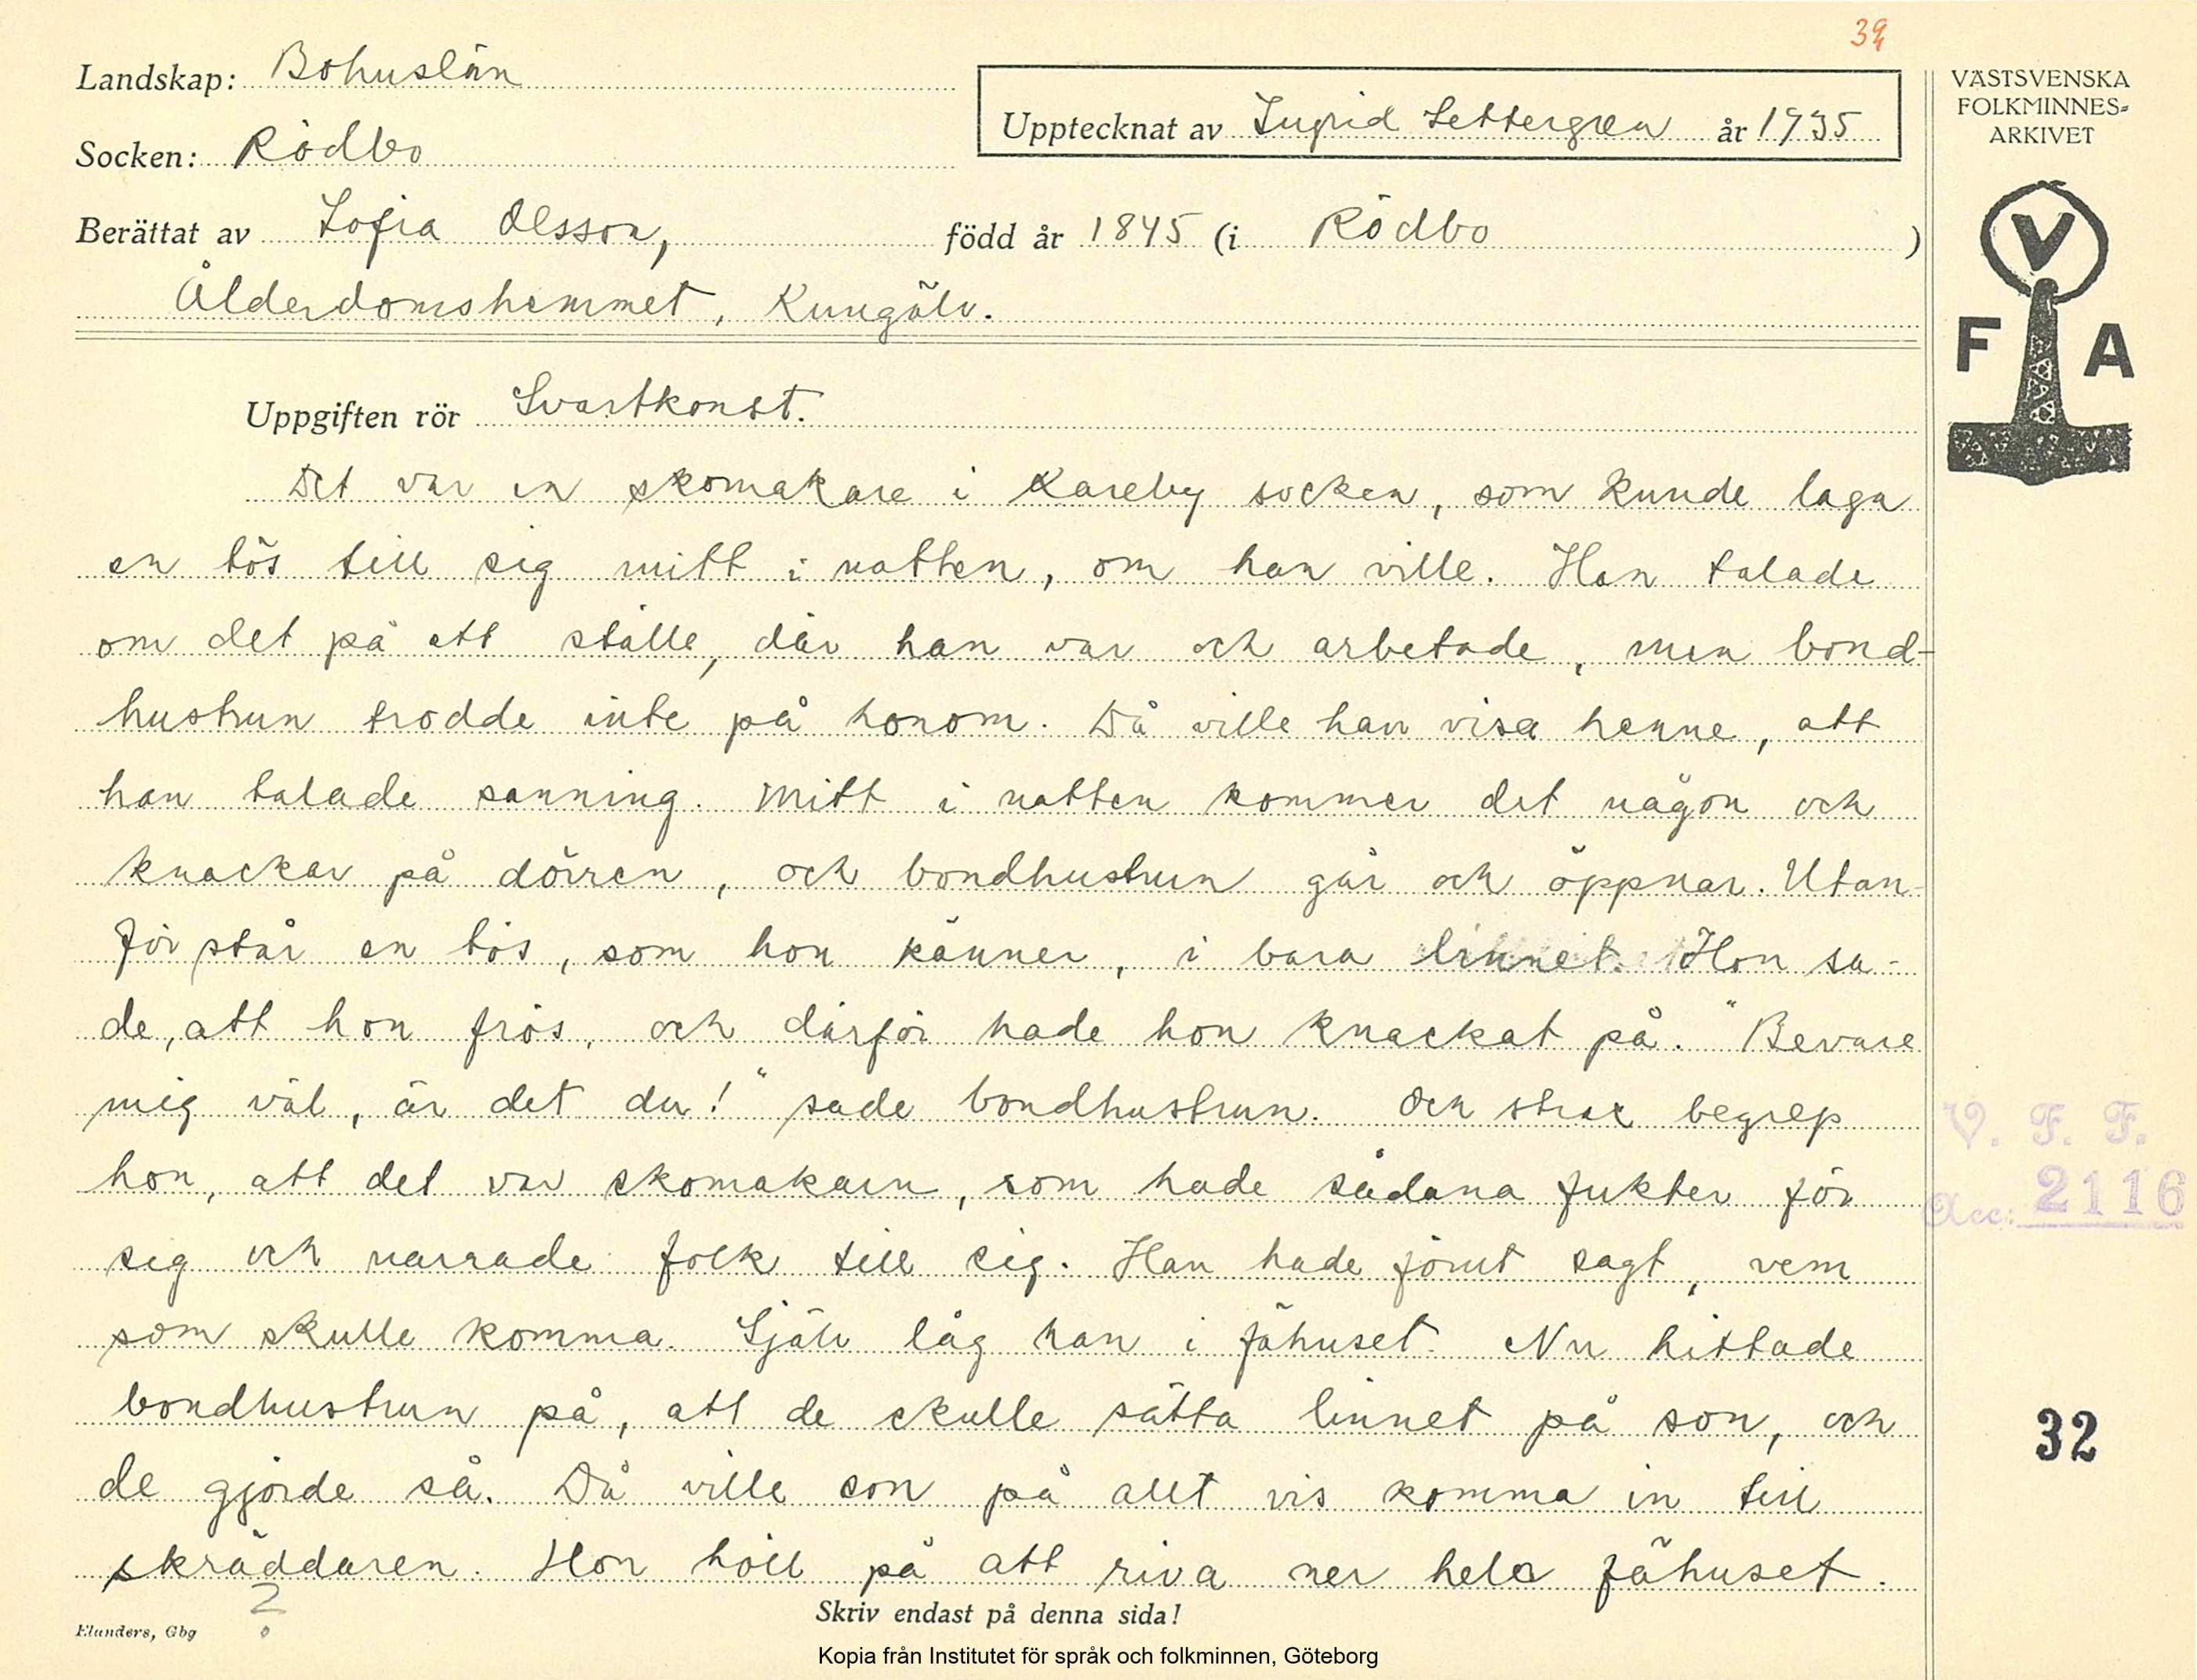 39
Landskap: Bohuslän
Upptecknat av Ingrid Settergren år 1935
VÄSTSVENSKA
FOLKMINNES=
ARKIVET
Socken: Rödbo
Berättat av Sofia Olsson, född år 1845 (i Rödbo )
Ålderdomshemmet, Kungälv.
V
F A
Uppgiften rör Svartkonst.
Det var en skomakare i Kareby socken, som kunde laga
en tös till sig mitt i natten, om han ville. Han talade
om det på ett ställe, där han var och arbetade, men bond-
hustrun trodde inte på honom. Då ville han visa henne, att
han talade sanning. Mitt i natten kommer det någon och
knackar på dörren, och bondhustrun går och öppnar. Utan-
för står en tös, som hon känner, i bara linnet. Hon sa-
de, att hon frös, och därför hade hon knackat på. "Bevare
mig väl, är det du!" sade bondhustrun. Och strax begrep
hon, att det var skomakarn, som hade sådana fukter för
sig och narrade folk till sig. Han hade förut sagt, vem
som skulle komma. Själv låg han i fähuset. Nu hittade
bondhustrun på, att de skulle sätta linnet på son, och
de gjorde så. Då ville son på allt vis komma in till
skräddaren. Hon höll på att riva ner hela fähuset.
?
V. F. F.
Acc: 2116
32
Skriv endast på denna sida!
Elanders, Gbg
Kopia från Institutet för språk och folkminnen, Göteborg